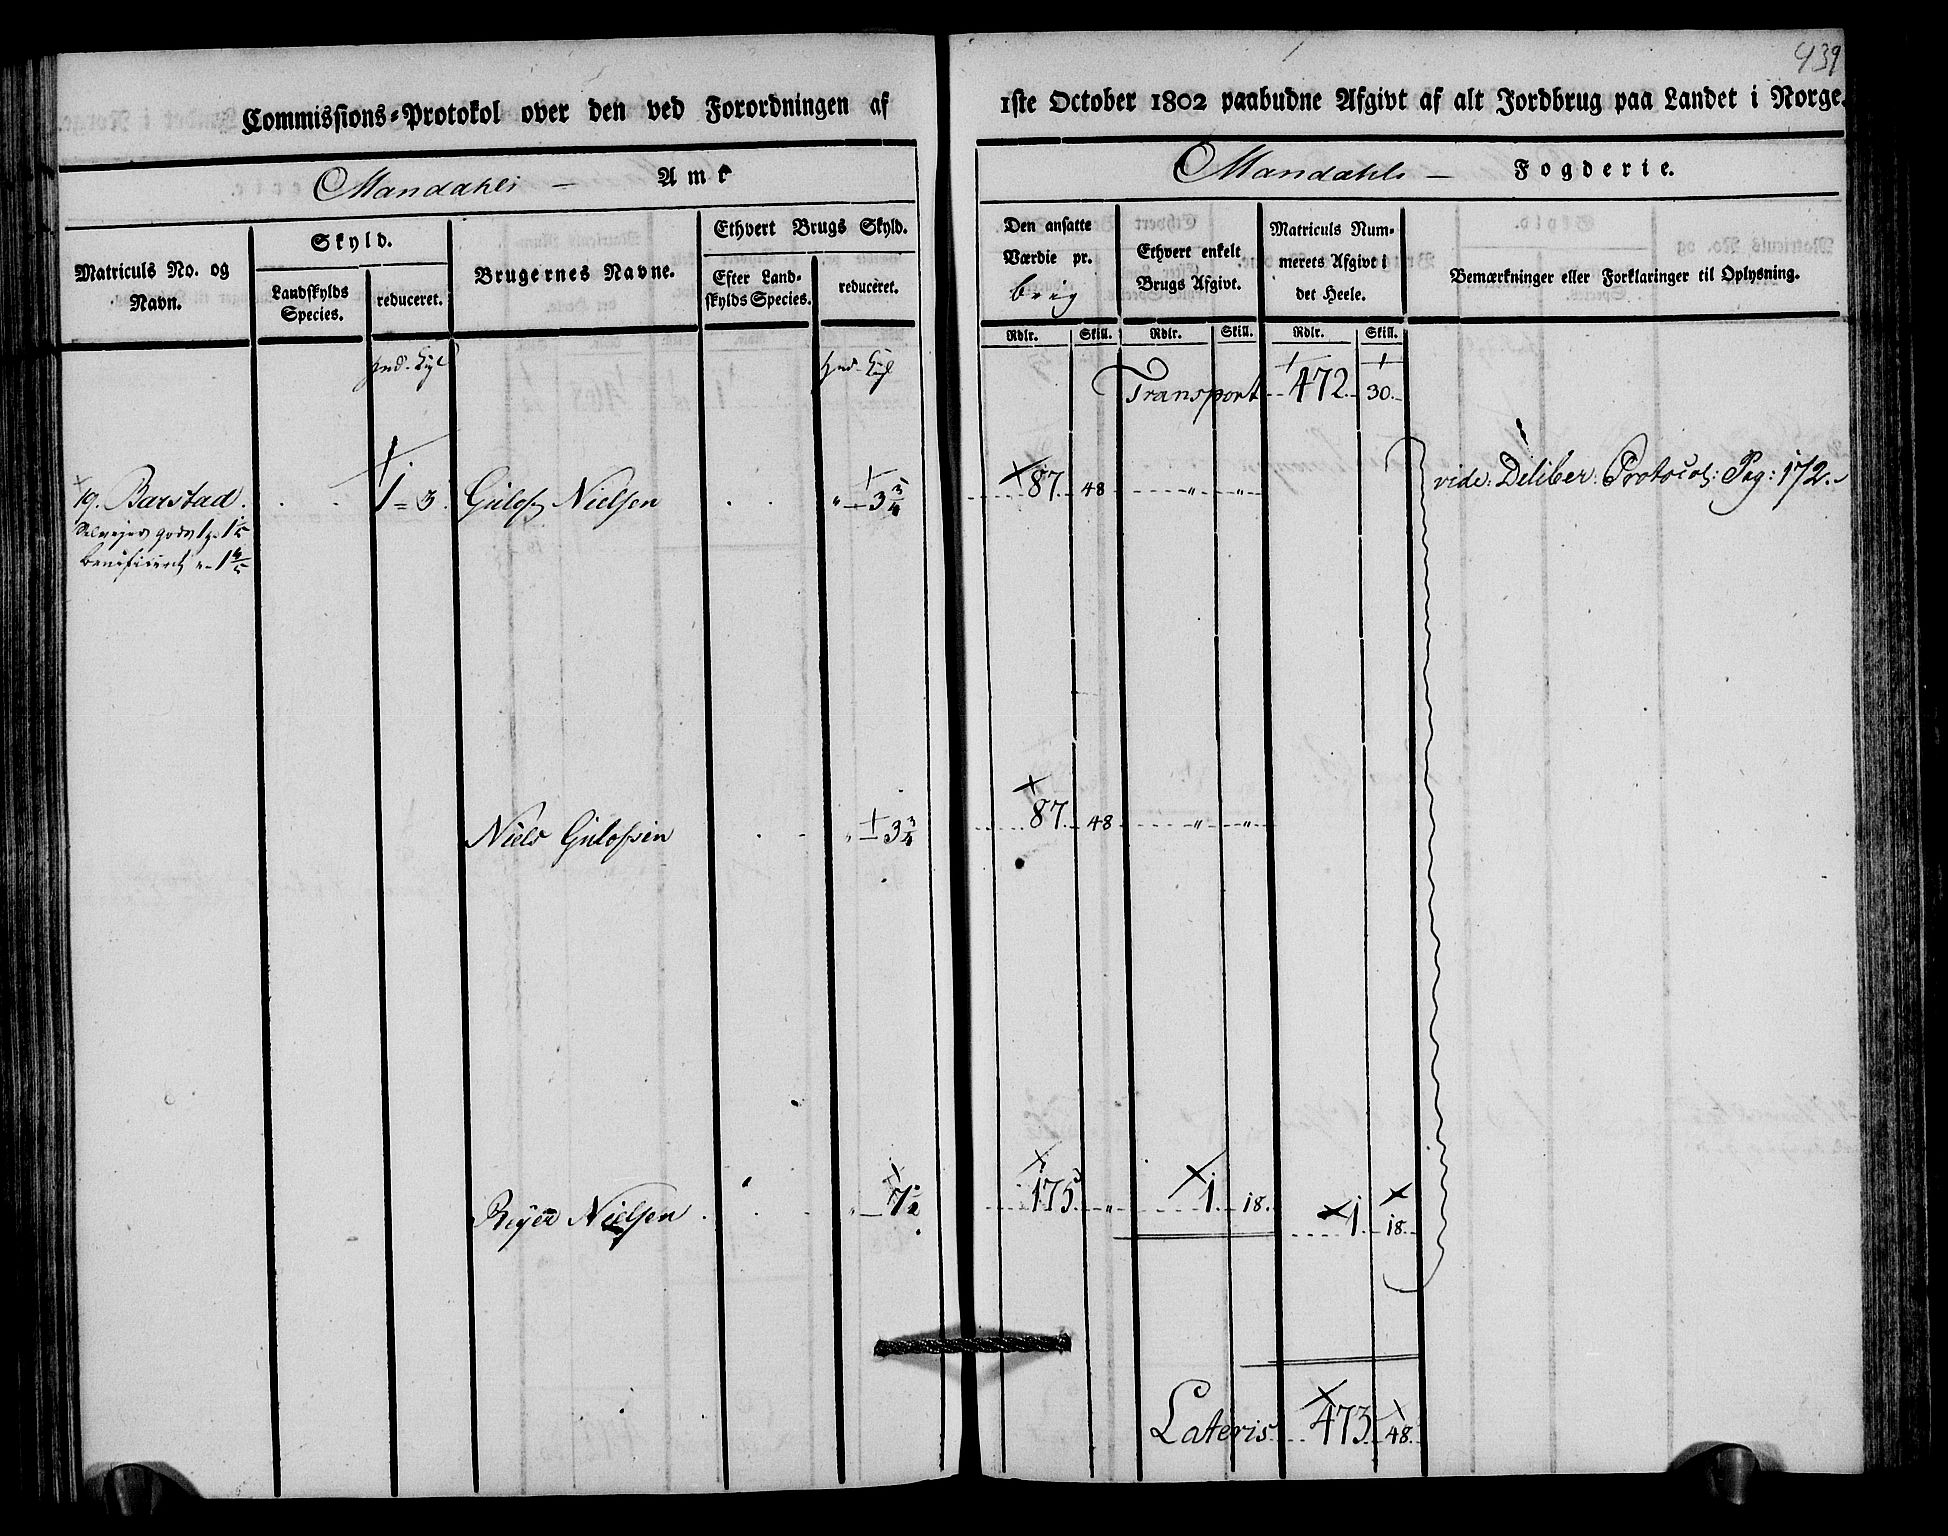 439
Commissions-Protokol over den ved Forordningen af 1ste October 1802 paabudne Afgivt af alt Jordbrug paa Landet i Norge.
Mandahls — Amt
Mandahls — Fogderie.
Matriculs No. og Navn.
Skyld.
Landskylds Species.
reduceret.
Brugernes Navne.
Ethvert Brugs Skyld.
Efter Landskylds Species.
reduceret.
Den ansatte Værdie pr.
Rdlr. Skill.
Ethvert enkelt Brugs Afgivt.
Rdlr. Skill.
Matriculs Nummerets Afgivt i det Heele.
Rdlr. Skill.
Bemærkninger eller Forklaringer til Oplysning.
Transport 472 30
19. Barstad. 1 = 3 Gulof Nielsen " — 3 3/4 87 48 " " vide: Deliber: Protocol: Pag: 172.
Niels Gulofsen " — 3 3/4 87 48 " "
Reyer Nielsen " — 7 1/2 175 " 1 18. 1 18.
Lateris 473 48.